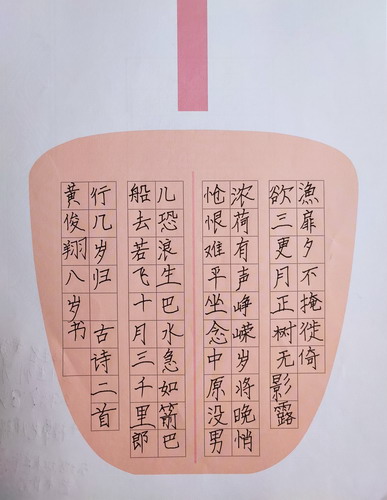 漁扉夕不掩徙倚
欲三更月正树无影露
浓荷有声峥嵘岁将晚悄
怆恨难平坐念中原没男
儿恐浪生巴水急如箭巴
船去若飞十月三千里郎
行几岁归 古诗二首
黄俊翔八岁书